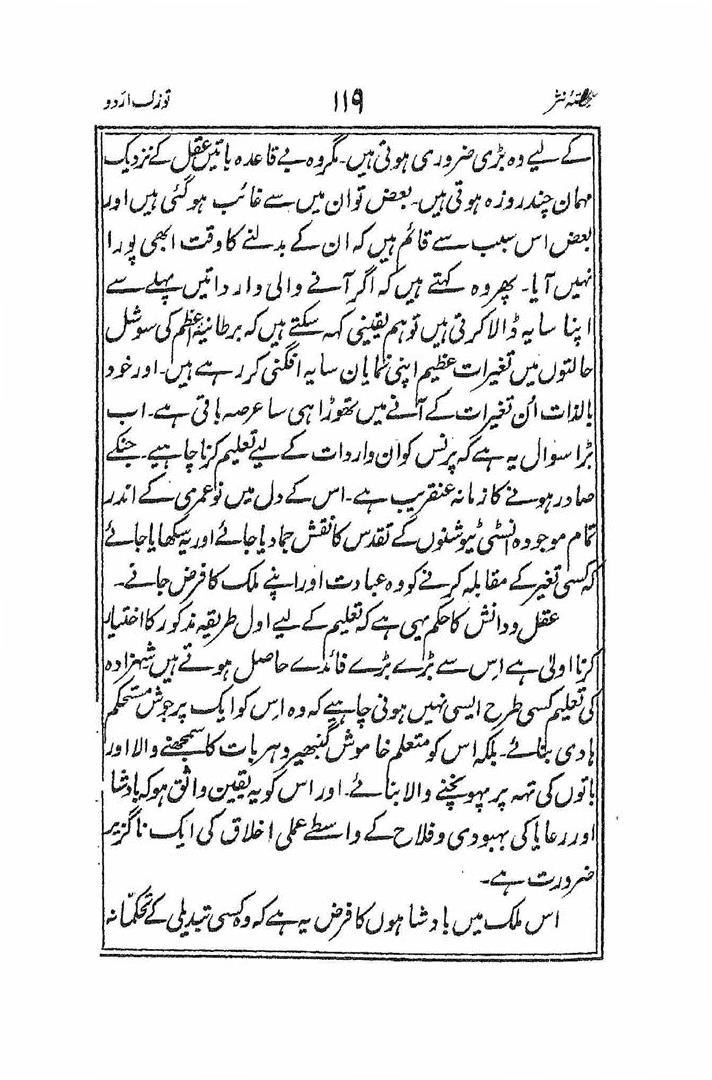 حصّہ نثر ۱۱۹ توزک اردو
کے لیے وہ بڑی ضروری ہوتی ہیں۔ مگر وہ بے قاعدہ باتیں عقل کے نزدیک
مہمان چند روزہ ہوتی ہیں۔ بعض تو ان میں سے غائب ہو گئی ہیں اور
بعض اس سبب سے قائم ہیں کہ ان کے بدلنے کا وقت ابھی پورا
نہیں آیا۔ پھر وہ کہتے ہیں کہ اگر آنے والی وارداتیں پہلے سے
اپنا سایہ ڈالا کرتی ہیں تو ہم یقینی کہہ سکتے ہیں کہ برطانیۂ اعظم کی سوشل
حالتوں میں تغیرات عظیم اپنی نمایان سایہ افگنی کر رہے ہیں۔ اور خود
بالذات اُن تغیرات کے آنے میں تھوڑا ہی سا عرصہ باقی ہے۔ اب
بڑا سوال یہ ہے کہ پرنس کو ان واردات کے لیے تعلیم کرنا چاہیے۔ جنکے
صادر ہونے کا زمانہ عنقریب ہے۔ اس کے دل میں نو عمری کے اندر
تمام موجودہ انسٹی ٹیوشنوں کے تقدس کا نقش جما دیا جائے اور یہ سکھایا جائے
کہ کسی تغیر کے مقابلہ کرنے کو وہ عبادت اور اپنے ملک کا فرض جانے۔
عقل و دانش کا حکم یہی ہے کہ تعلیم کے لیے اول طریقہ مذکور کا اختیار
کرنا اولیٰ ہے اس سے بڑے بڑے فائدے حاصل ہوتے ہیں شہزادہ
کی تعلیم کسی طرح ایسی نہیں ہونی چاہیے کہ وہ اس کو ایک پرجوش مستحکم
ہادی بنائے۔ بلکہ اس کو متعلم خاموش گنبھیر و ہر بات کا سمجھنے والا اور
باتوں کی تہہ پر پہونچنے والا بنائے۔ اور اس کو یہ یقین واثق ہو کہ بادشا
اور رعایا کی بہبودی و فلاح کے واسطے عملی اخلاق کی ایک ناگزیر
ضرورت ہے۔
اس ملک میں بادشاہوں کا فرض یہ ہے کہ وہ کسی تبدیلی کے تحکمّانہ